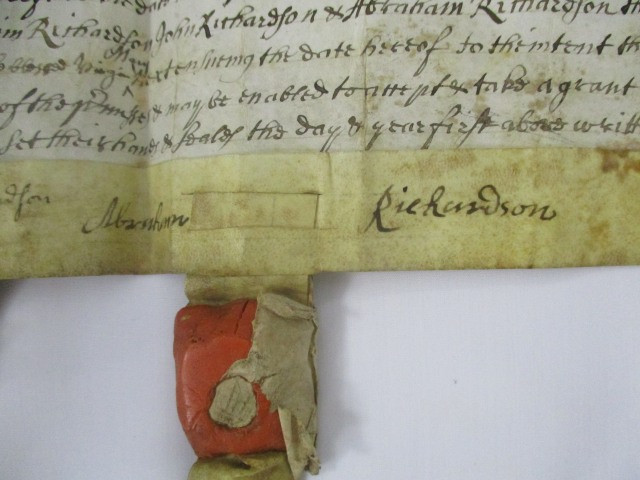 m Richardson John Richardson & Abraham Richardson th
next ensueing the date hereof to the intent th
of the p'mises & may be enabled to accept & take a grant
set their hands & seales the day & yeare first above writt
dson Abraham Richardson